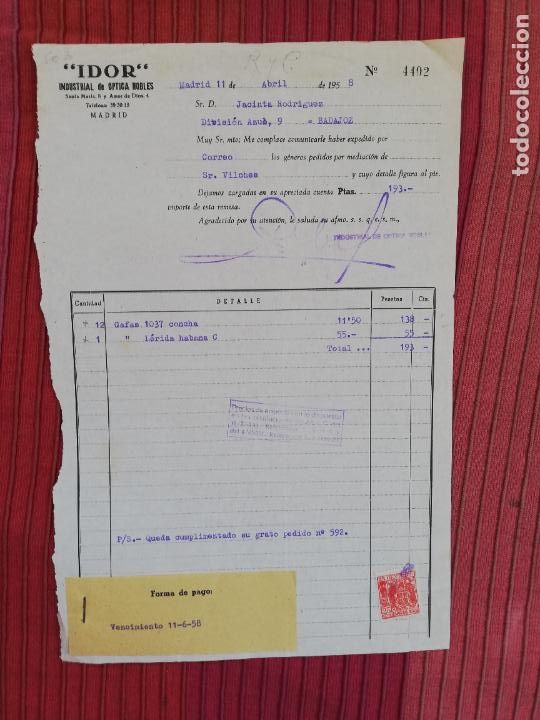 "IDOR"
INDUSTRIAL de OPTICA NOBLES
Santa María, 8 y Amor de Dios, 4
Teléfono
MADRID
R y C
Nº 4402
Madrid 11 de Abril de 1958
Sr. D. Jacinta Rodriguez
División Azul, 9 = BADAJOZ
Muy Sr. mto: Me complace comunicarle haber expedido por
Correo los géneros pedidos por mediación de
Sr. Vilches y cuyo detalle figura al pie.
Dejamos cargadas en su apreciada cuenta Ptas. 193.-
importe de esta remesa.
Agradecido por su atención, le saluda su afmo. s. s. q. e. s. m.,
INDUSTRIAL DE OPTICA NOBLES
Cantidad DETALLE Pesetas Cts.
12 Gafas 1037 concha 11'50 138 -
1 " Lérida habana C 55.- 55 -
Total ... 193 -
P/S.- Queda cumplimentado su grato pedido nº 592.
Forma de pago:
Vencimiento 11-6-58
todocoleccion